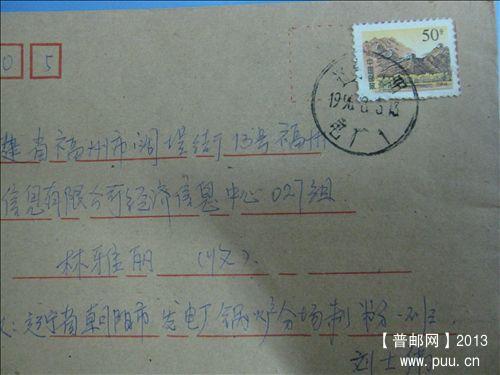 50分
中国邮政
0 5
1998.8.5.13
电厂 1
建省福州市湖堤街13号福州
信息有限公司经济信息中心027组
林雅丽 (收)
辽宁省朝阳市发电厂锅炉分场制粉一班
刘士
【普邮网】2013
www.puu.cn